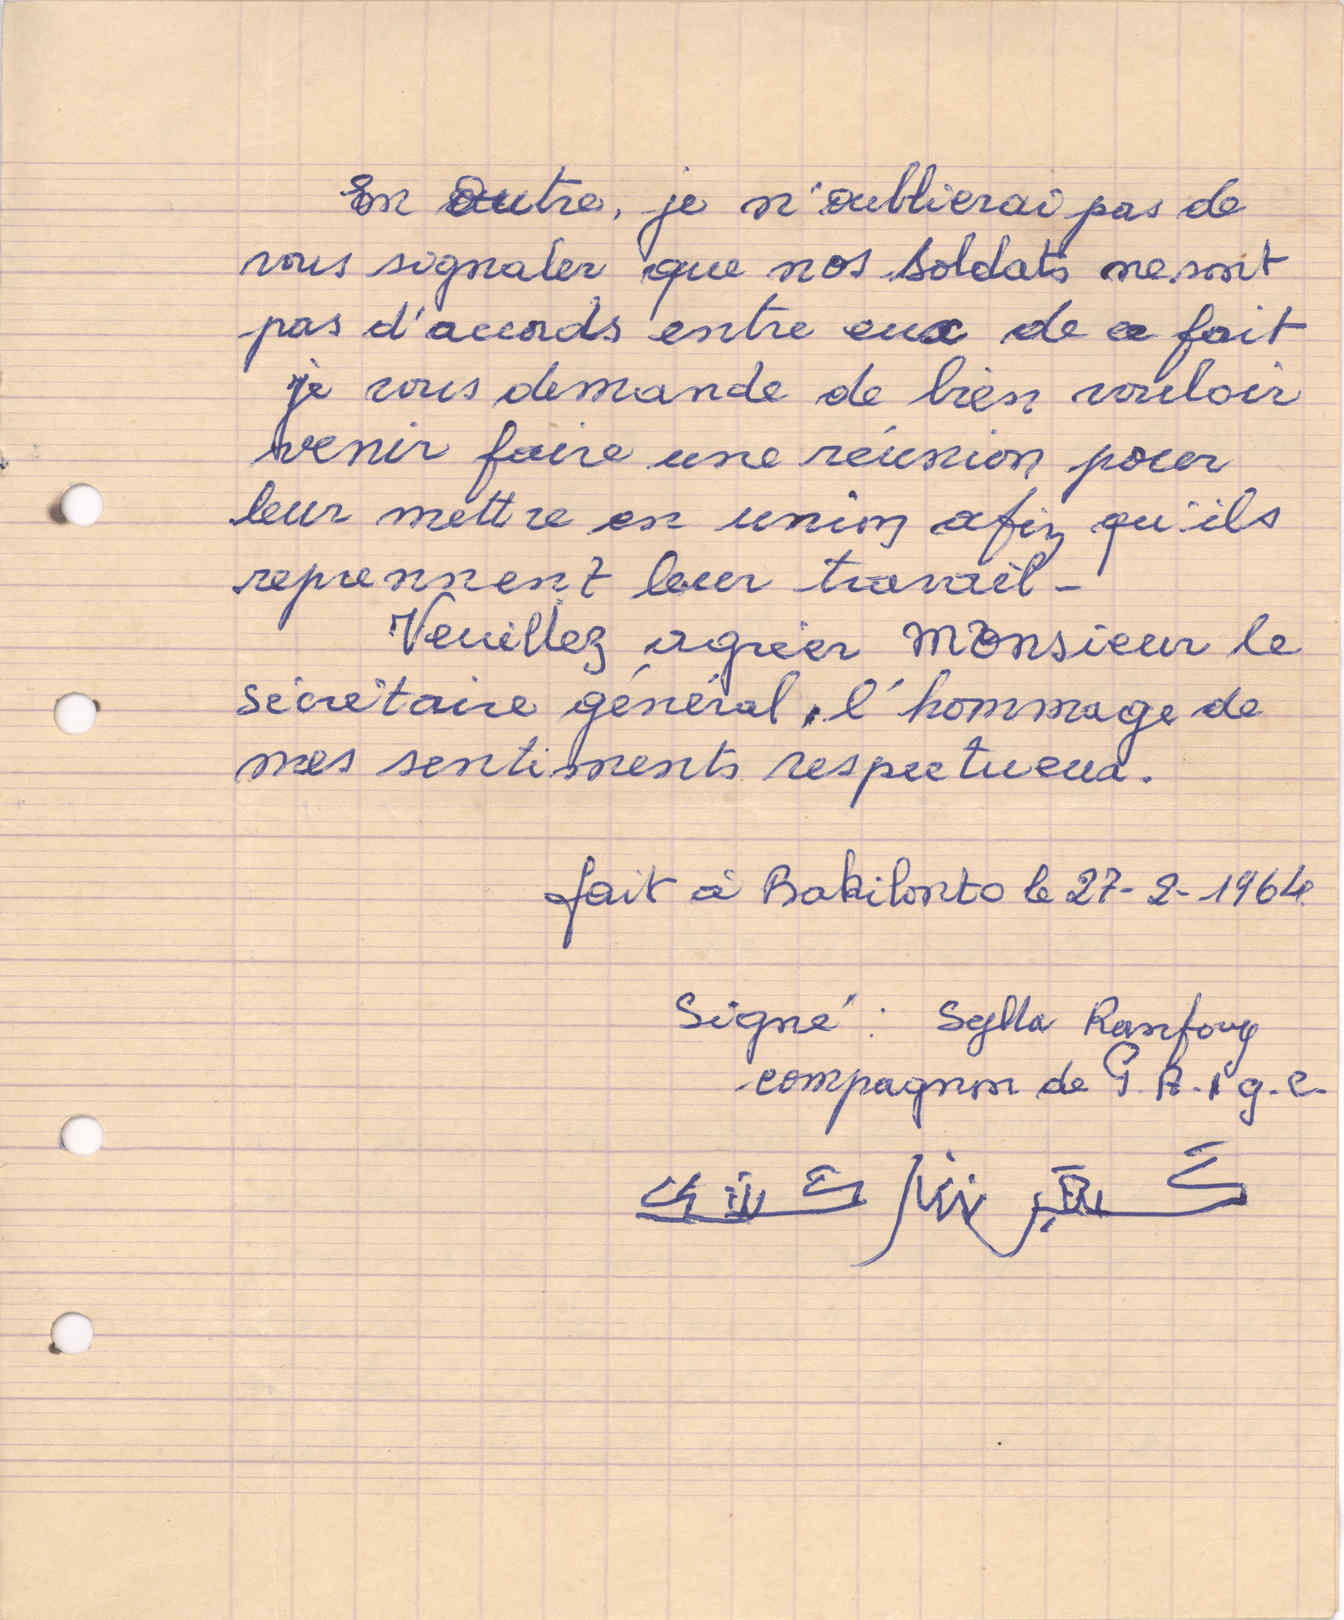 En outre, je n'oublierai pas de
vous signaler que nos soldats ne sont
pas d'accords entre eux de ce fait
je vous demande de bien vouloir
venir faire une réunion pour
leur mettre en union afin qu'ils
reprennent leur travail -
Veuillez agréer Monsieur le
sécrétaire général, l'hommage de
mes sentiments respectueux.
fait à Bakilonto le 27-2-1964
Signé : Sylla Ranfoug
compagnon de P.A.I g.c.